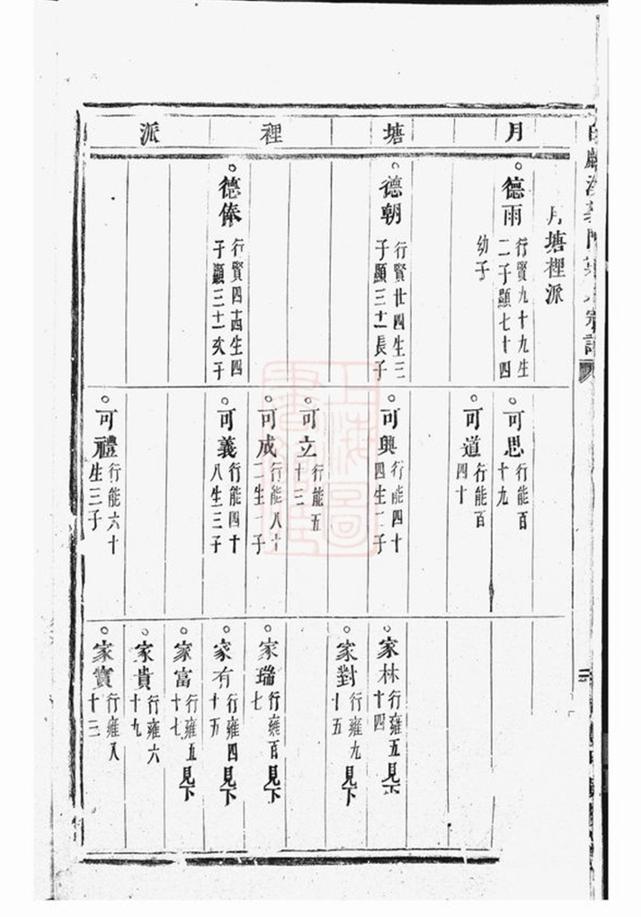 月塘裡派
月塘裡派
德雨
行賢九十九生
二子顯七十四
幼子
德朝
行賢廿四生三
子顯三十一長子
德俸
行賢四十四生四
子顯三十一次子
可思
行能百
十九
可道
行能百
四十
可興
行能四十
四生二子
可立
行能五
十三
可成
行能八十
二生一子
可義
行能四十
八生三子
可禮
行能六十
生三子
家林
行雍五
十四
見下
家對
行雍九
十五
見下
家瑞
行雍百
七
見下
家有
行雍四
十五
見下
家富
行雍五
十七
見下
家貴
行雍六
十九
家實
行雍八
十三